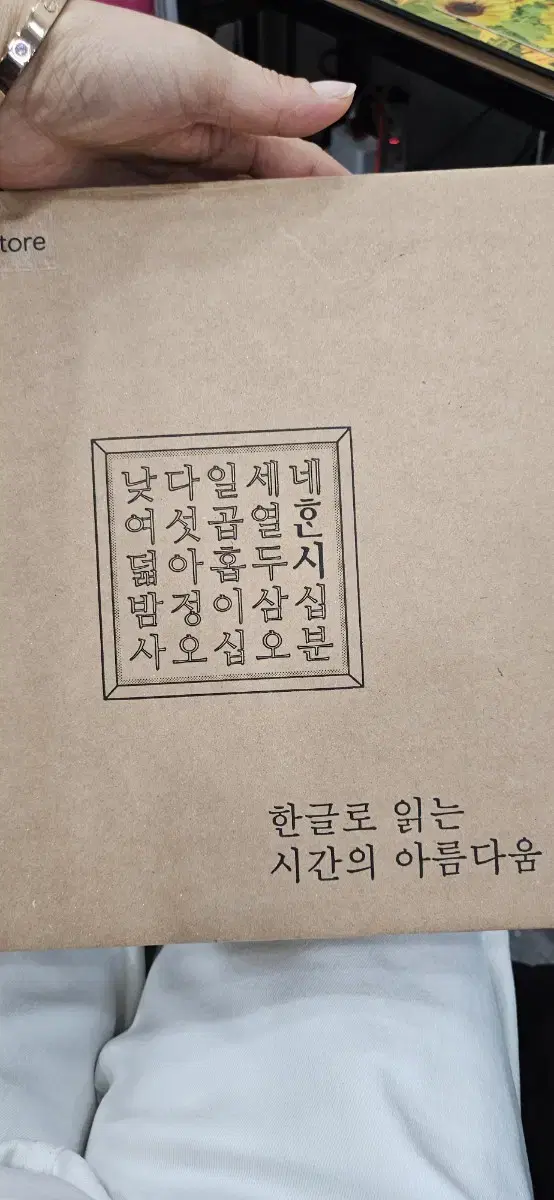 tore
낮다일세네
여섯곱열한
덟아홉두시
밤정이삼십
사오십오분
한글로 읽는
시간의 아름다움